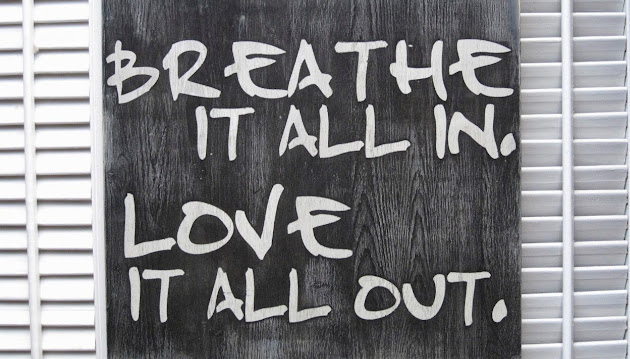 BREATHE
IT ALL IN.
LOVE
IT ALL OUT.